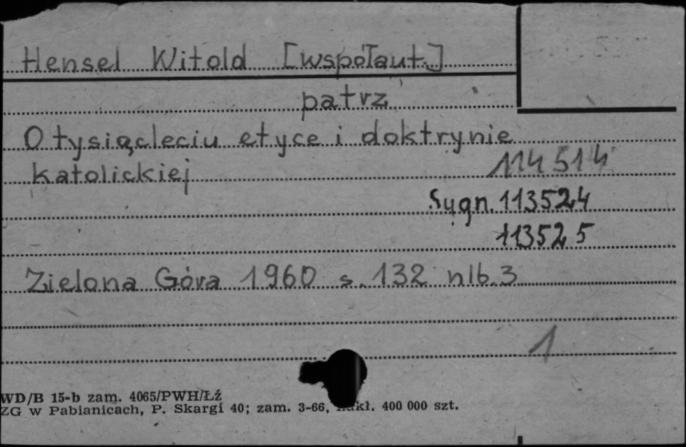 Hensel Witold [współaut.]
patrz
O tysiącleciu etyce i doktrynie
katolickiej
114514
Sygn. 113524
113525
Zielona Góra 1960 s. 132 nlb. 3
1
WD/B 15-b zam. 4065/PWH/Łź
ZG w Pabianicach, P. Skargi 40; zam. 3-66, nakł. 400 000 szt.